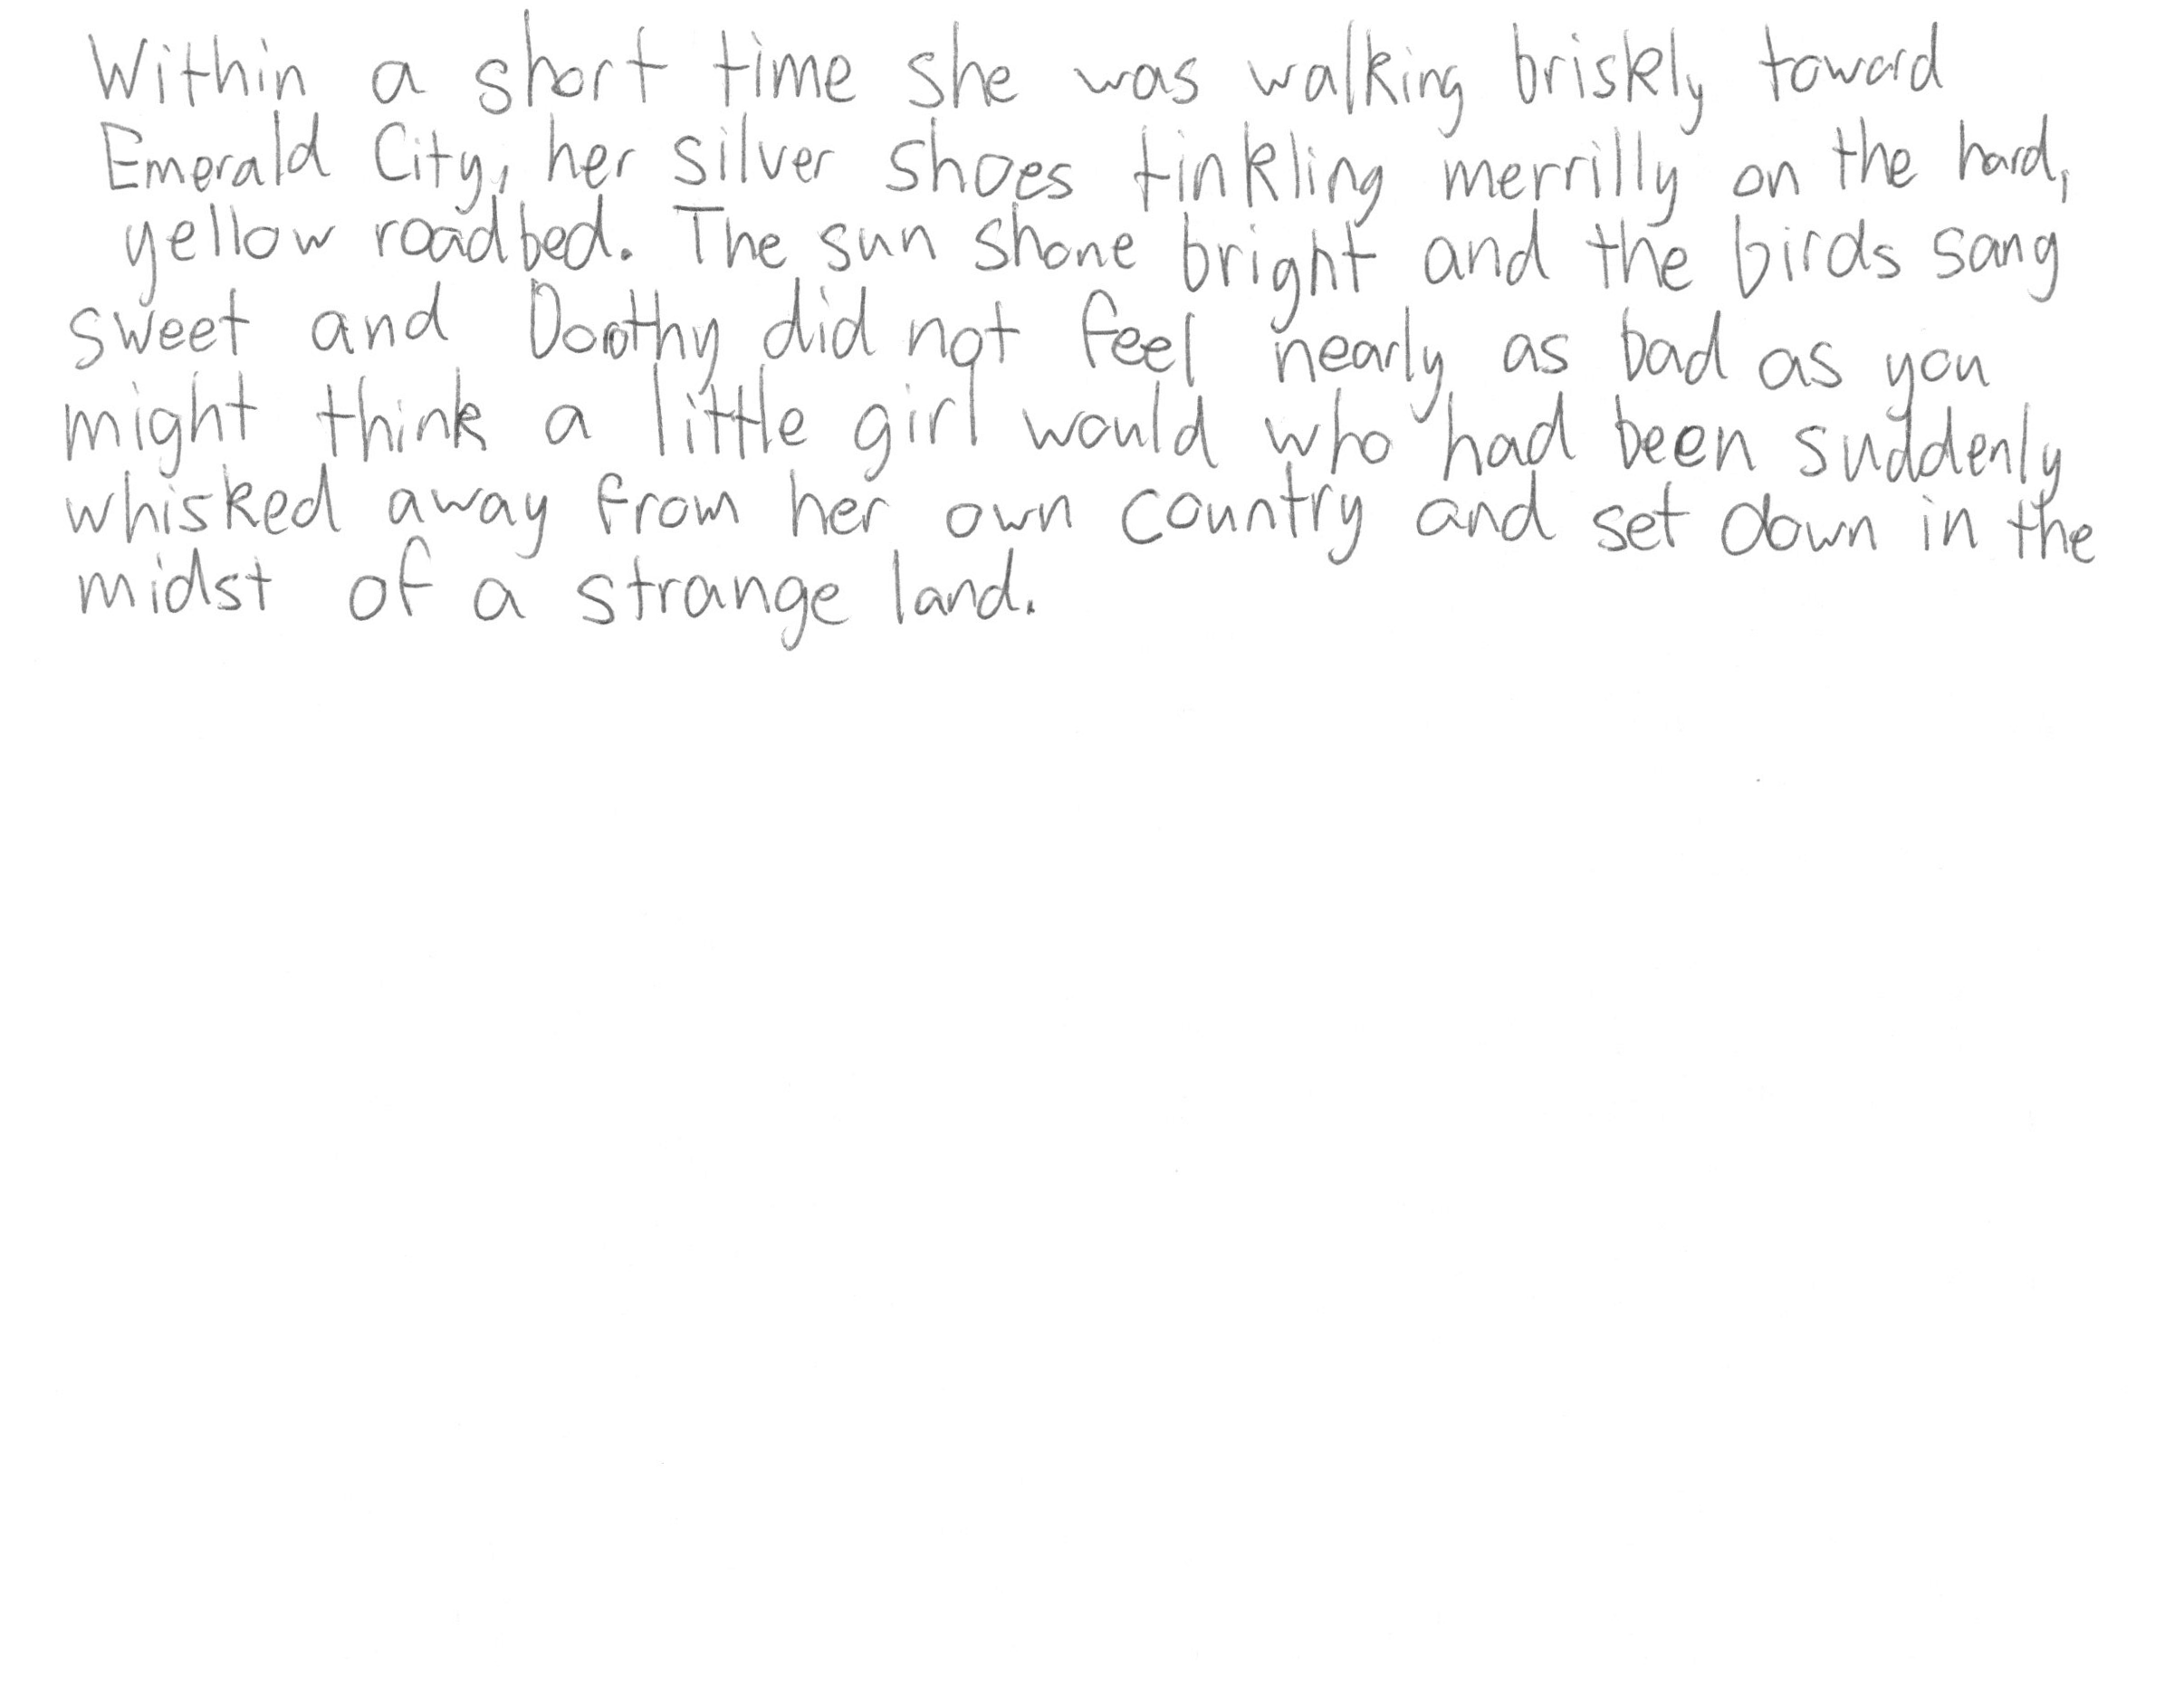 Within a short time she was walking briskly toward
Emerald City, her silver shoes tinkling merrilly on the hard,
yellow roadbed. The sun shone bright and the birds sang
sweet and Dorothy did not feel nearly as bad as you
might think a little girl would who had been suddenly
whisked away from her own country and set down in the
midst of a strange land.